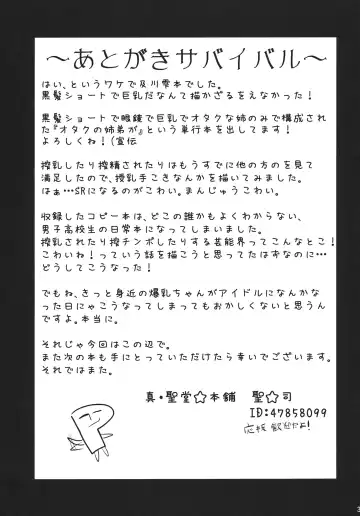 ～あとがきサバイバル～
はい、というワケで及川雫本でした。
黒髪ショートで巨乳だなんて描かざるをえなかった！
黒髪ショートで眼鏡で巨乳でオタクな姉のみで構成され
た『オタクの姉弟が』という単行本を出してます！
よろしくね！(宣伝
搾乳したり搾精されたりはもうすでに他の方のを見て
満足したので、授乳手こきなんかを描いてみました。
はぁ…SRになるのがこわい。まんじゅうこわい。
収録したコピー本は、どこの誰かもよくわからない、
男子高校生の日常本になってしまいました。
搾乳されたり搾チンポしたりする芸能界ってこんなとこ！
こわいね！っていう話を描こうと思ってたはずなのに…
どうしてこうなった！
でもね、きっと身近の爆乳ちゃんがアイドルになんかな
った日にゃこうなってしまってもおかしくないと思うん
ですよ。本当に。
それじゃ今回はこの辺で。
また次の本も手にとっていただけたら幸いでございます。
それではまた。
真・聖堂☆本舗 聖☆司
ID:47858099
応援歓迎だよ！